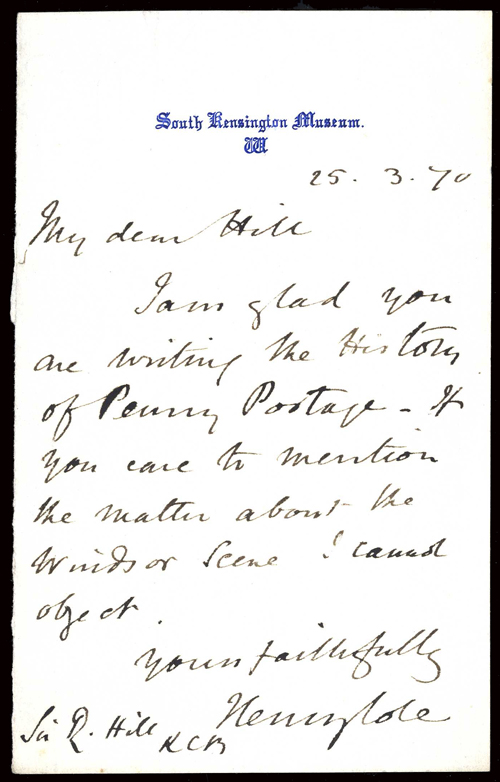 South Kensington Museum.
W
25. 3. 70
My dear Hill
I am glad you
are writing the History
of Penny Postage - If
you care to mention
the matter about the
Windsor Scene I cannot
object.
yours faithfully
Henry Cole
Sir R. Hill
KCB